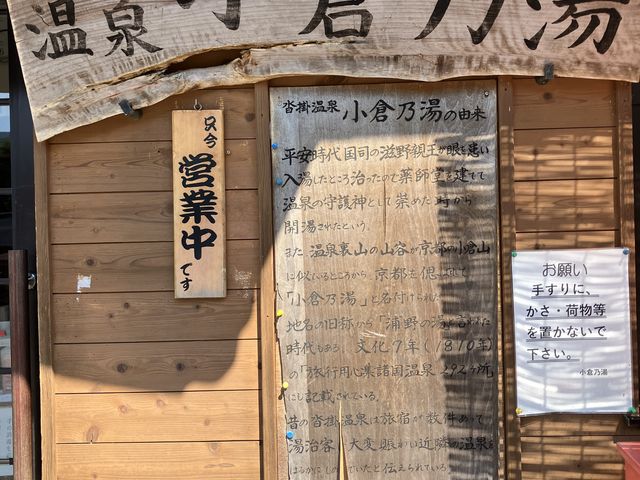 温泉 小倉乃湯
只今
営業中
です
沓掛温泉 小倉乃湯の由来
平安時代国司の滋野親王が眼を患い
入湯したところ治ったので薬師堂を建てて
温泉の守護神として崇めた時から
開湯されたという。
また 温泉裏山の山容が京都の小倉山
に似ているところから、京都を偲
「小倉乃湯」と名付けられた
地名の旧称から「浦野の湯」と言われた
時代もある。文化7年(1810年)
の「旅行用心集諸国温泉292か所」
にも記載されている。
昔の沓掛温泉は旅宿が数件あって
湯治客 大変賑わい近隣の温泉を
いたと伝えられている
お願い
手すりに、
かさ・荷物等
を置かないで
下さい。
小倉乃湯